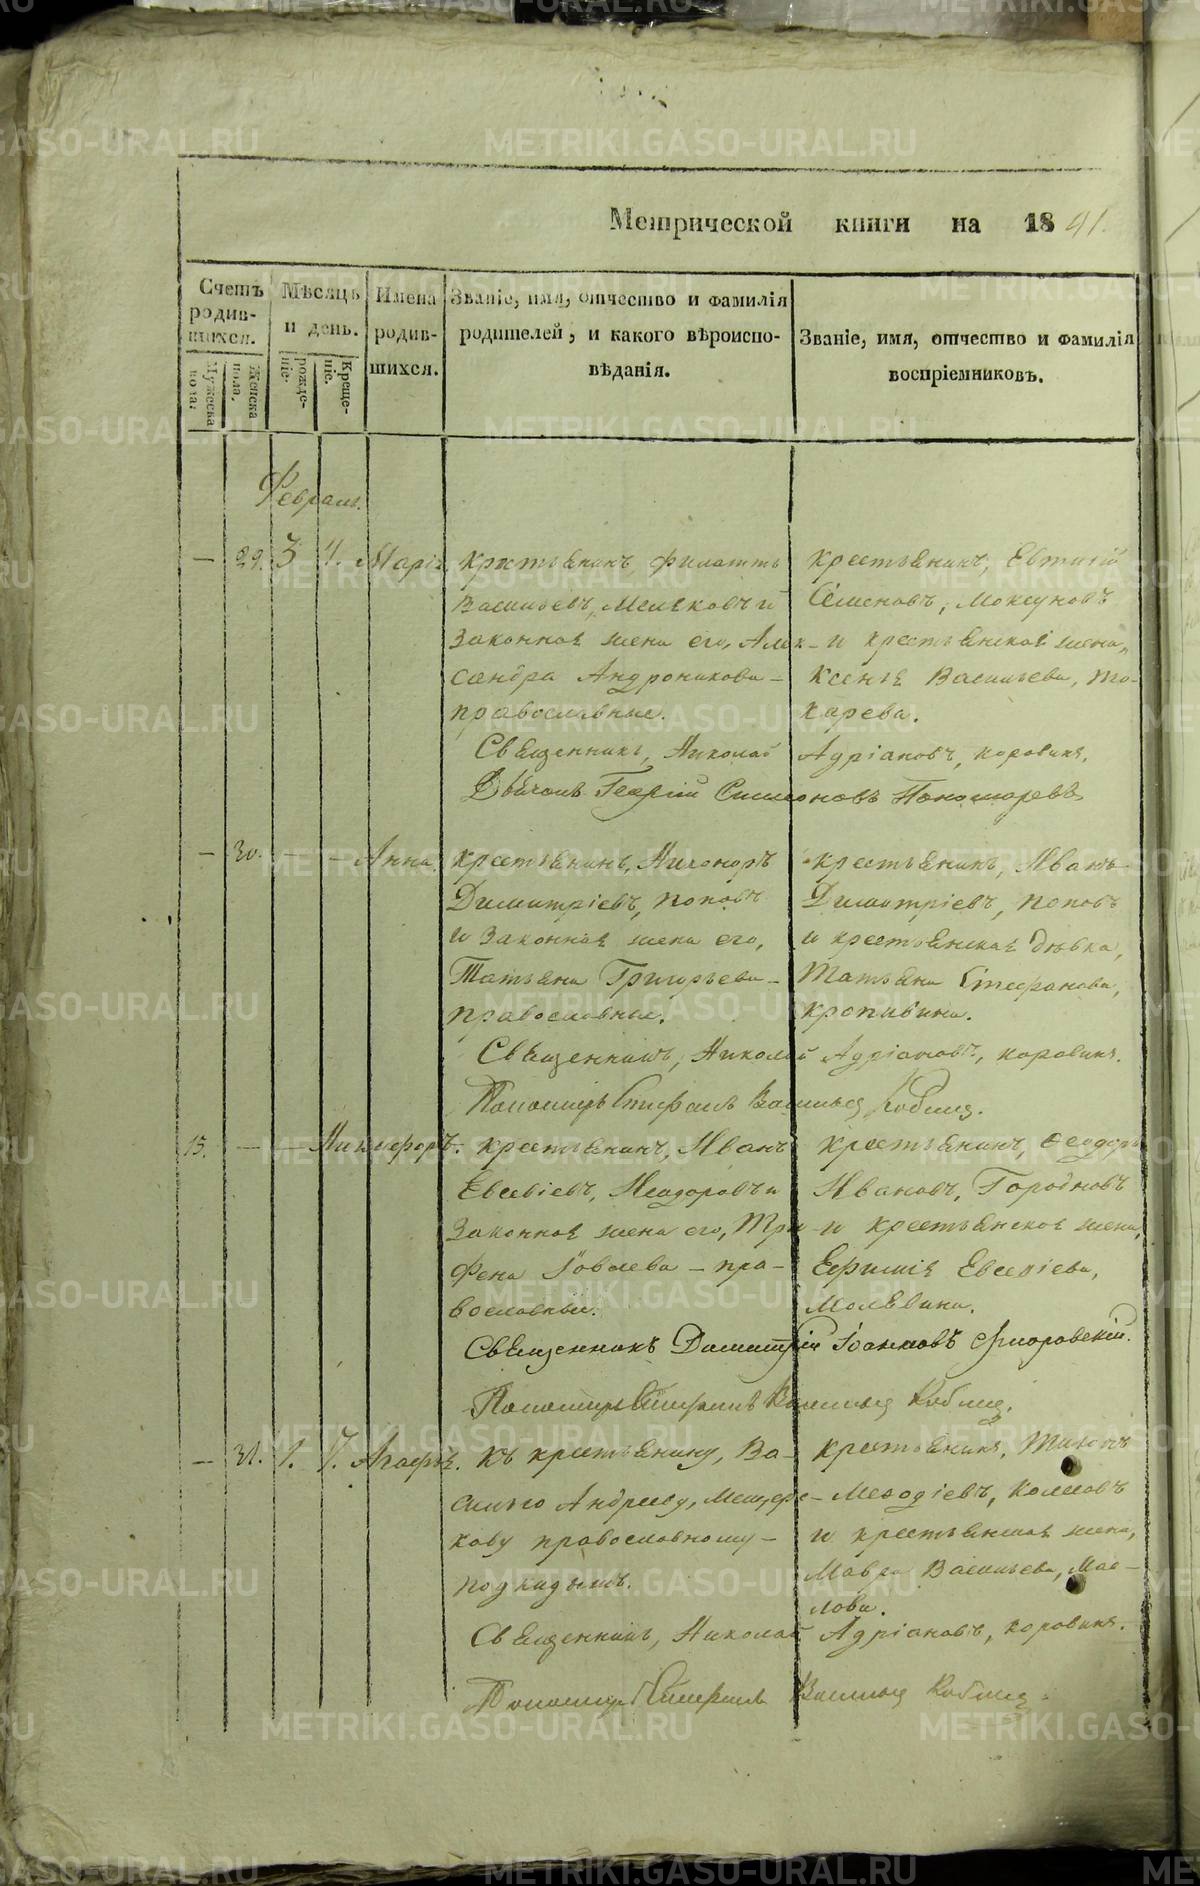 Метрической книги на 1841.
Счетъ родившихся.
Мѣсяцъ и день.
Имена родившихся.
Званіе, имя, отчество и фамилія
родителей, и какого вѣроиспо-
вѣданія.
Званіе, имя, отчество и фамилія
воспріемниковъ.
Мужеска пола.
Женска пола.
рожде-
ніе.
Креще-
ніе.
Февраль.
— 29. 3 4. Марія
крестьянинъ Филаттъ
Васильевъ, и
законная жена его, Алек-
сандра Андроникова —
православные.
крестьянинъ, Евтихій
Семеновъ, Моксуновъ
и крестьянская жена,
Ксенія Васильева, То-
карева.
Священникъ, Николай Адріановъ, Коровинъ.
Дьяконъ Георгій Симеоновъ Пономаревъ
— 30. — — Анна
крестьянинъ, Никаноръ
Димитріевъ, Поповъ
и законная жена его,
Татьяна Григорьева —
православные.
крестьянинъ, Иванъ
Димитріевъ, Поповъ
и крестьянская дѣвка,
Татьяна Стефанова,
Кропивина.
Священникъ, Николай Адріановъ, Коровинъ.
Пономарь Стефанъ Васильевъ
15. — — Никифоръ.
крестьянинъ, Иванъ
Евсевіевъ, и
законная жена его, Три-
фена — пра-
вославные.
крестьянинъ, Феодоръ
Ивановъ,
и крестьянская жена,
Ефимія Евсевіева,
Молявина.
Священникъ Димитрій Іоанновъ Флоровскій.
Пономарь Стефанъ Васильевъ
— 31. 1. 7. Агафья.
Къ крестьянину, Ва-
силью Андрееву, Мещеря-
кову православному —
подкидышъ.
крестьянинъ, Тихонъ
Меѳодіевъ,
и крестьянская жена,
Мавра Васильева, Мас-
лова.
Священникъ, Николай Адріановъ, Коровинъ.
Пономарь Стефанъ Васильевъ
METRIKI.GASO-URAL.RU